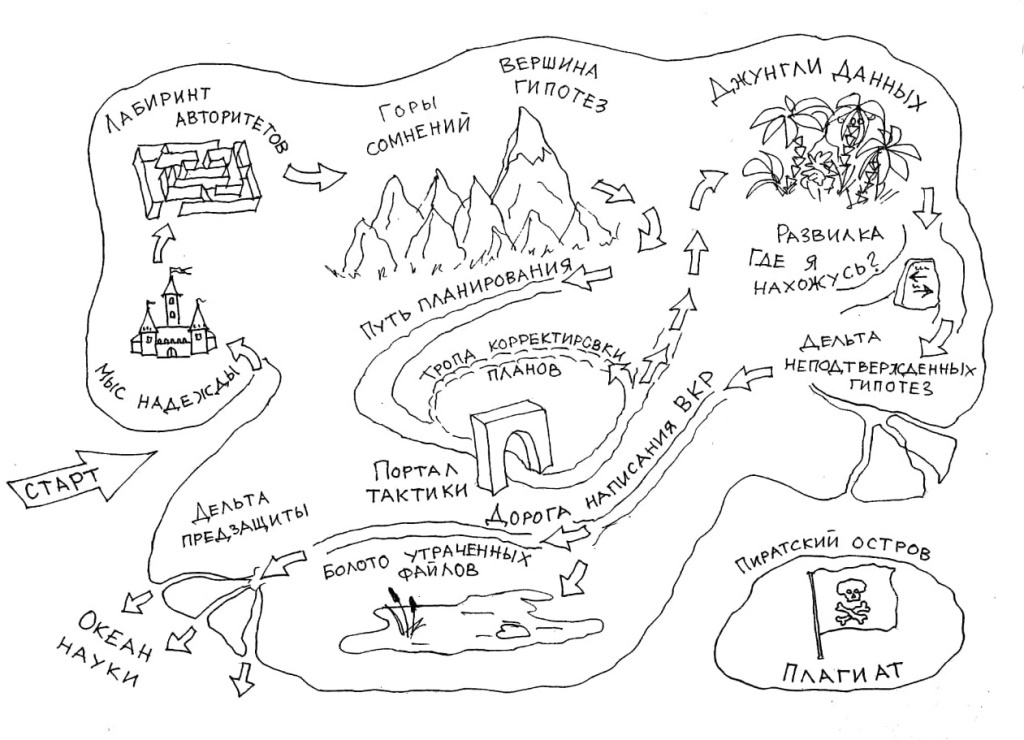 ЛАБИРИНТ
АВТОРИТЕТОВ
ГОРЫ
СОМНЕНИЙ
ВЕРШИНА
ГИПОТЕЗ
ДЖУНГЛИ ДАННЫХ
РАЗВИЛКА
ГДЕ Я
НАХОЖУСЬ?
ПУТЬ ПЛАНИРОВАНИЯ
ТРОПА КОРРЕКТИРОВКИ
ПЛАНОВ
ДЕЛЬТА
НЕПОДТВЕРЖДЕННЫХ
ГИПОТЕЗ
МЫС НАДЕЖДЫ
СТАРТ
ПОРТАЛ
ТАКТИКИ
ДОРОГА НАПИСАНИЯ ВКР
ДЕЛЬТА
ПРЕДЗАЩИТЫ
БОЛОТО УТРАЧЕННЫХ
ФАЙЛОВ
ОКЕАН
НАУКИ
ПИРАТСКИЙ ОСТРОВ
ПЛАГИАТ